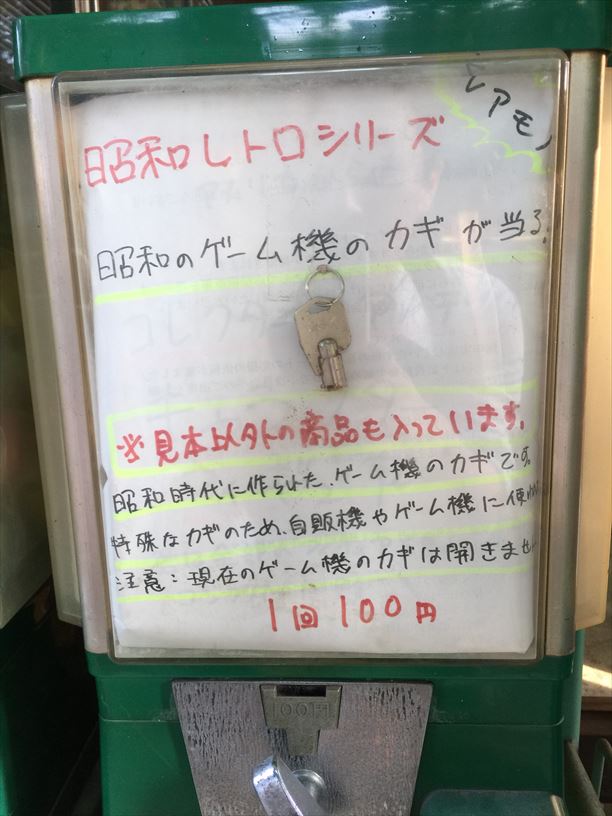 レアモノ
昭和レトロシリーズ
昭和のゲーム機のカギが当る
※見本以外の商品も入っています。
昭和時代に作られた、ゲーム機のカギです。
特殊なカギのため、自販機やゲーム機に使
注意:現在のゲーム機のカギは開きませ
1回100円
100円